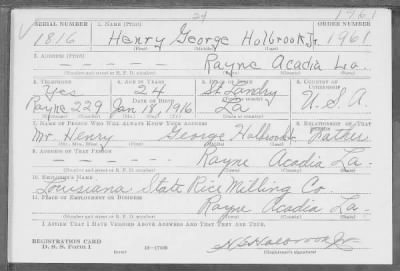 24 1961
SERIAL NUMBER 1. NAME (Print) ORDER NUMBER
1816 Henry George Holbrook Jr. 1961
(First) (Middle) (Last)
2. ADDRESS (Print)
— — — — — Rayne Acadia La.
(Number and street or R. F. D. number) (Town) (County) (State)
3. TELEPHONE 4. AGE IN YEARS 5. PLACE OF BIRTH 6. COUNTRY OF CITIZENSHIP
Yes 24 St. Landry
DATE OF BIRTH
Rayne 229 Jan 18, 1916 La U.S.A.
7. NAME OF PERSON WHO WILL ALWAYS KNOW YOUR ADDRESS 8. RELATIONSHIP OF THAT PERSON
Mr. Henry George Holbrook Sr. Father
(Mr., Mrs., Miss) (First) (Middle) (Last)
9. ADDRESS OF THAT PERSON
— — — — — Rayne Acadia La.
(Number and street or R. F. D. number) (Town) (County) (State)
10. EMPLOYER'S NAME
Louisiana State Rice Milling Co.
11. PLACE OF EMPLOYMENT OR BUSINESS
— — — — — Rayne Acadia La.
(Number and street or R. F. D. number) (Town) (County) (State)
I AFFIRM THAT I HAVE VERIFIED ABOVE ANSWERS AND THAT THEY ARE TRUE.
REGISTRATION CARD
D. S. S. Form 1 H G Holbrook Jr
(Registrant's signature)